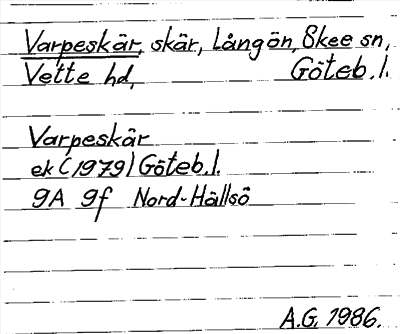 Varpeskär, skär, Långön, Skee sn,
Vette hd, Göteb. l.
Varpeskär
ek (1979) Göteb. l.
9A 9f Nord-Hällsö
A.G. 1986.